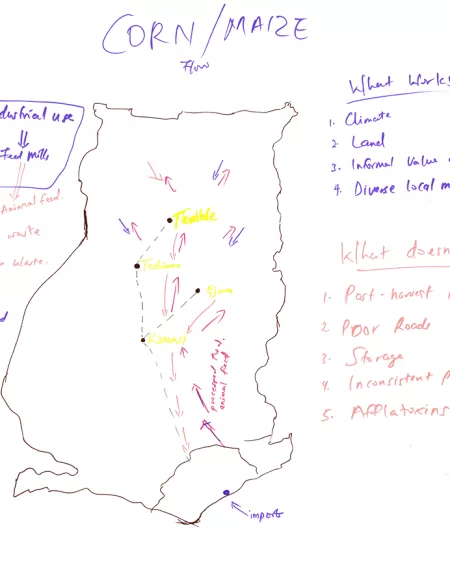 CORN/MAIZE
Flow
dustrial use
Feed mills
Animal feed.
waste
waste.
What Works
1. Climate
2. Land
3. Informal value
4. Diverse local m
What doesn
1. Post-harvest
2. Poor Roads
3. Storage
4. Inconsistent P
5. Afflatoxins
Techiman
Ejura
Kumasi
processed food,
animal feed.
imports